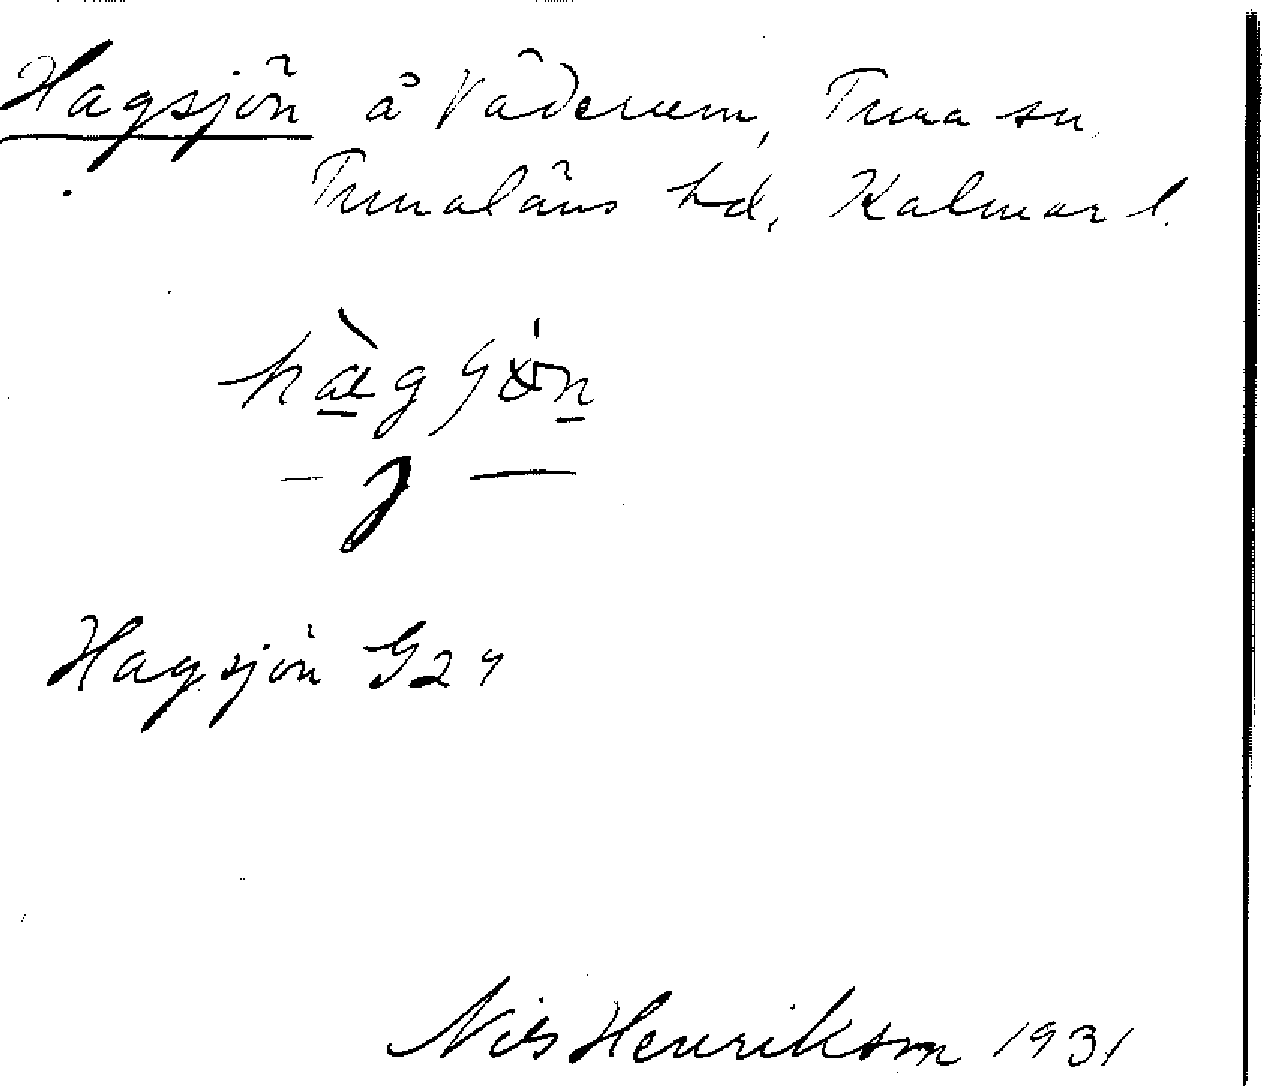 Hagsjön å Väderum, Tuna sn,
Tunaläns hd, Kalmar l.
Hagsjön G24
Nils Henrikson 1931